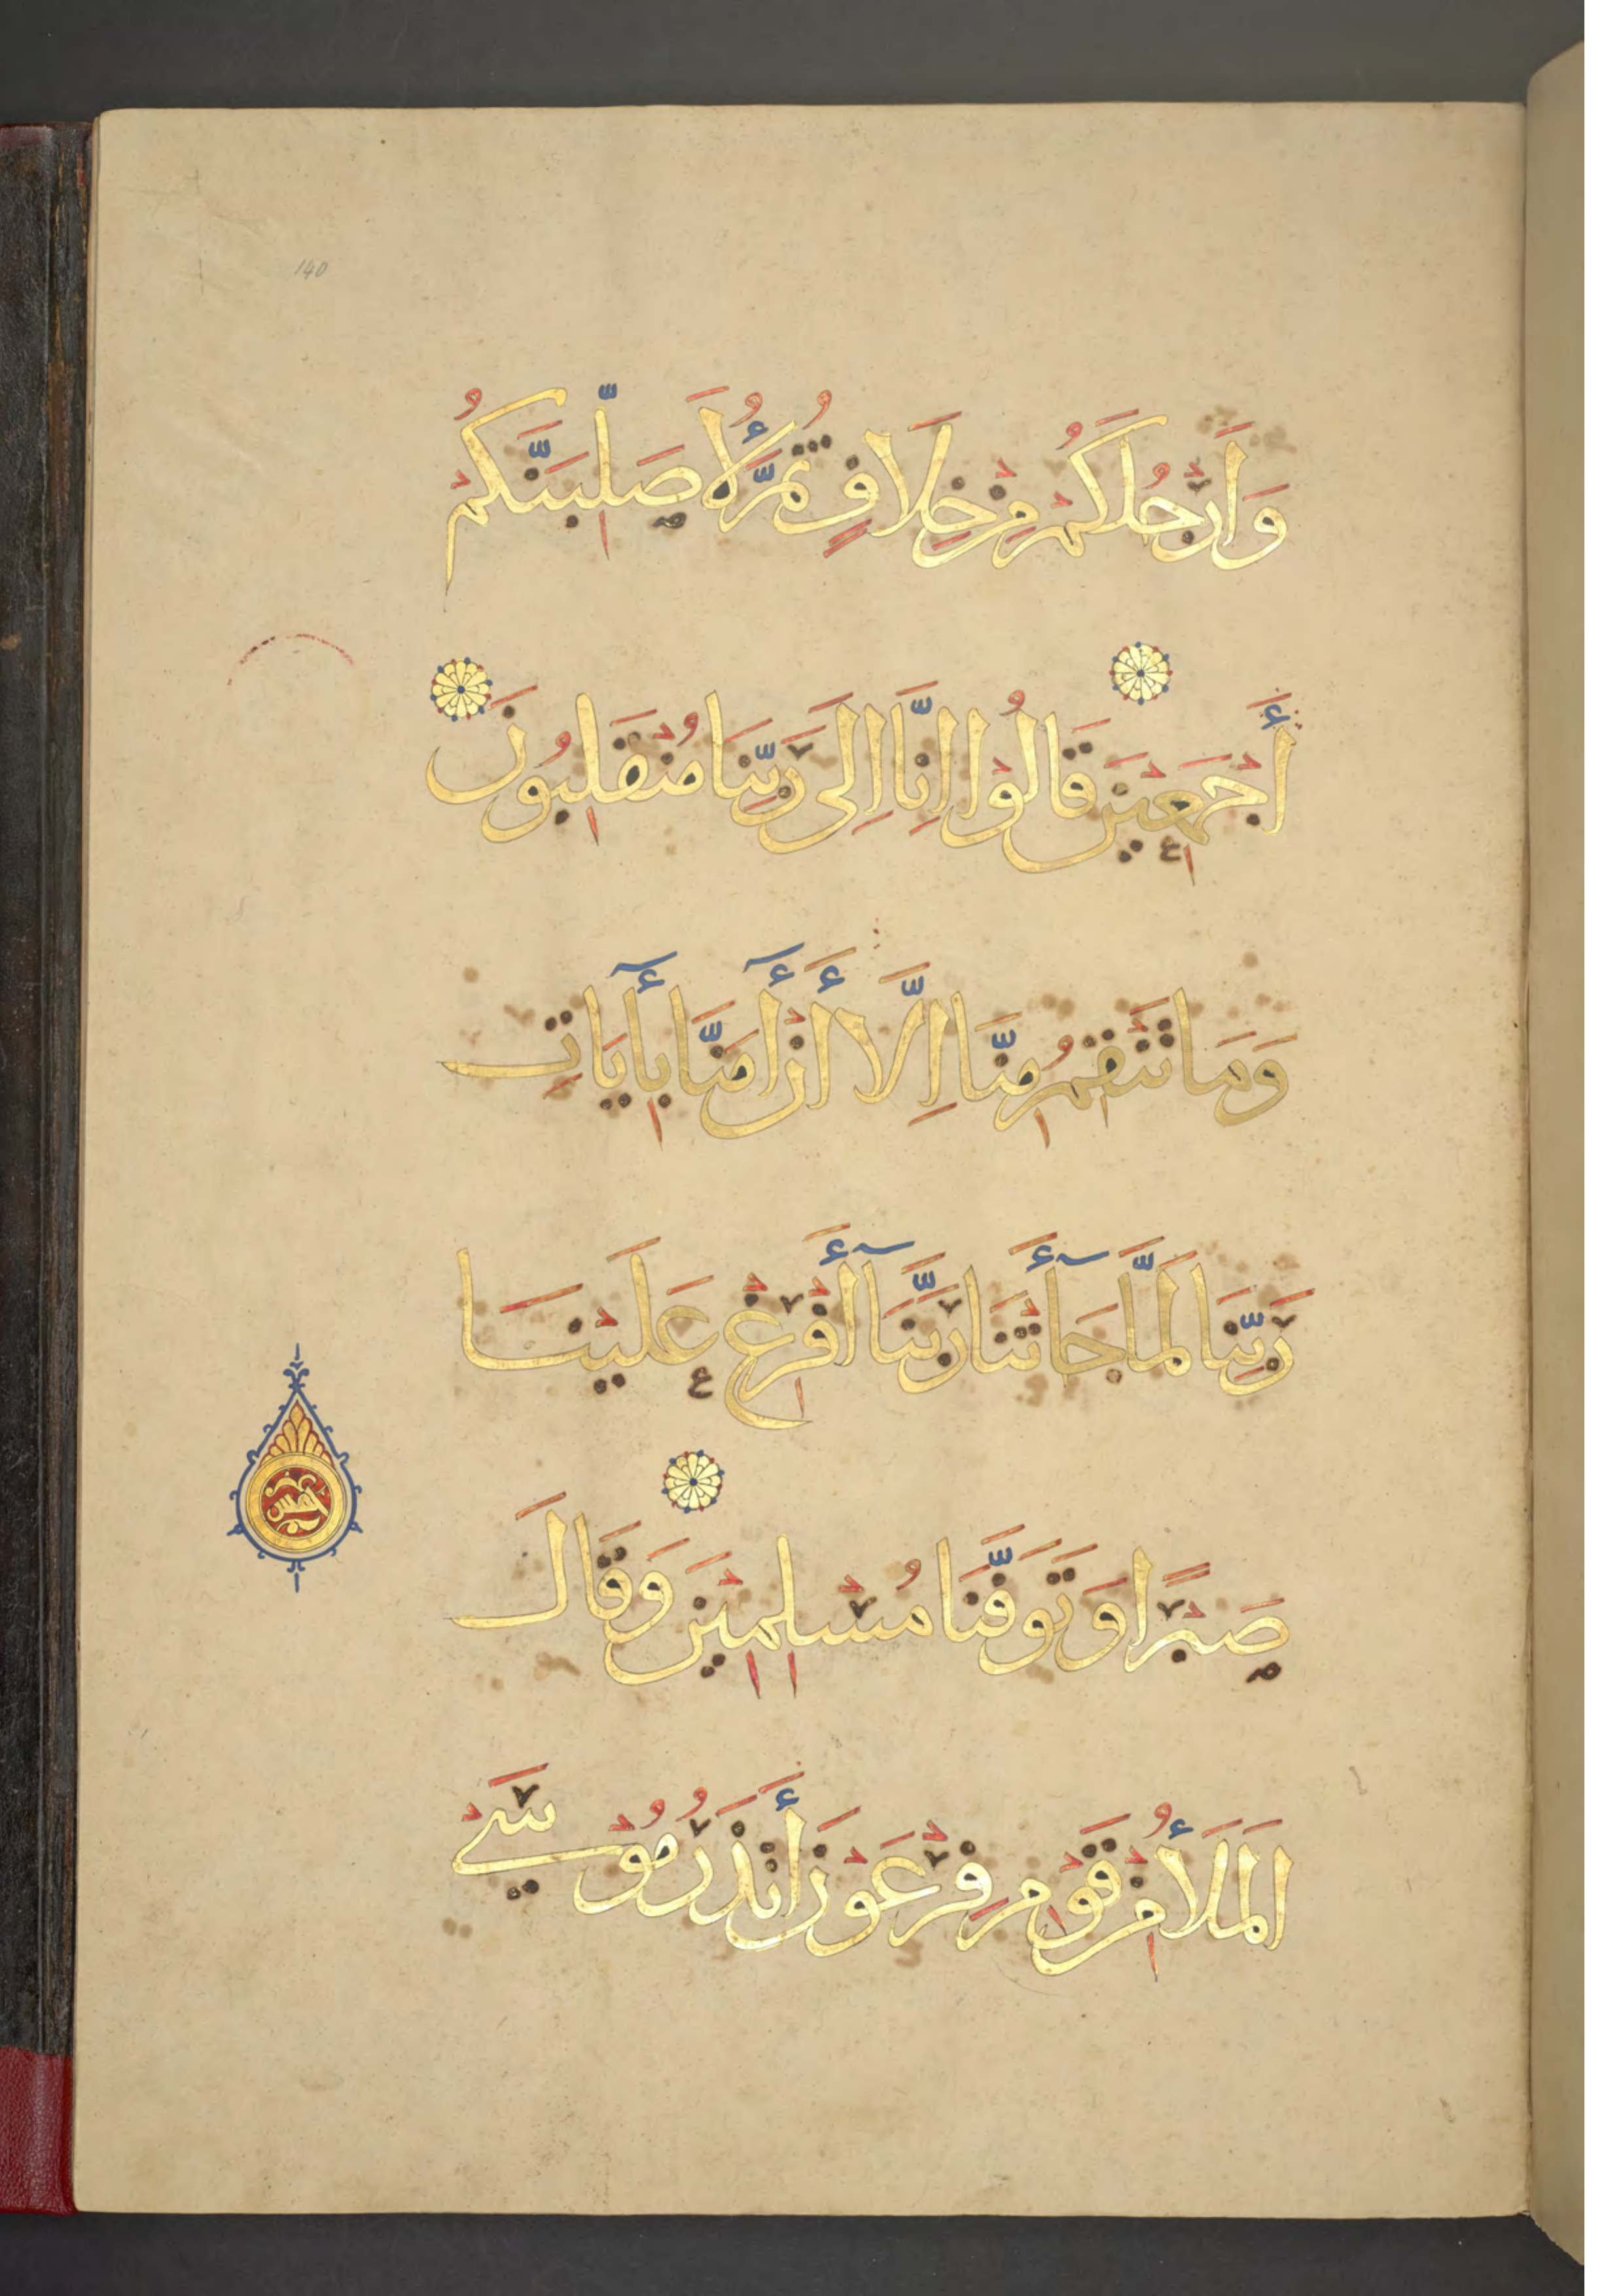 140
وَأَرْجُلَكُمْ مِنْ خِلَافٍ ثُمَّ لَأُصَلِّبَنَّكُمْ
أَجْمَعِيْنَ قَالُوْا إِنَّا إِلَى رَبِّنَا مُنْقَلِبُوْنَ
وَمَا تَنْقِمُ مِنَّا إِلَّا أَنْ أٓمَنَّا بِأٓيَاتِ
رَبِّنَا لَمَّا جَآأَتْنَا رَبَّنَآ أَفْرِغْ عَلَيْنَا
صَبْرًا وَتَوَفَّنَا مُسْلِمِيْنَ وَقَالَ
الْمَلَأُ مِنْ قَوْمِ فِرْعَوْنَ أَتَذَرُ مُوْسَى
خمس